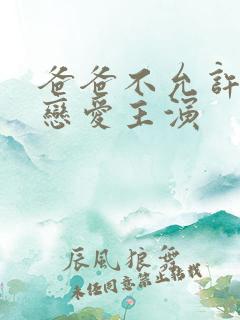 爸爸不允許
戀愛主演
辰風狼舞
未经同意禁止转载